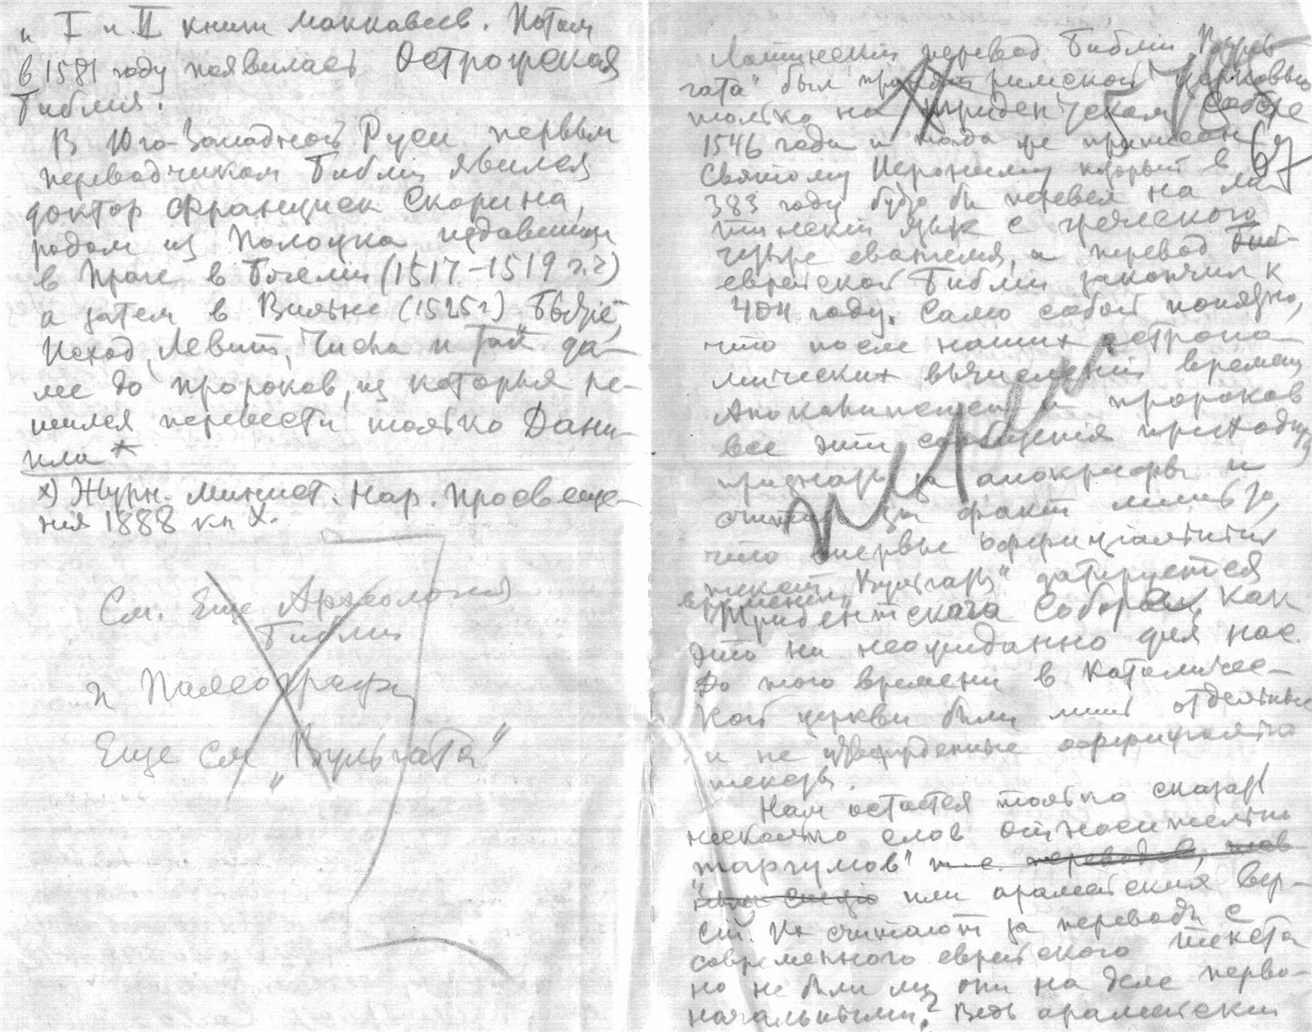 и I и II книги Маккавеев. Потом
в 1581 году появилась Острожская
Библия.
В Юго-Западной Руси первым
переводчиком Библіи явился
доктор Франциск Скорина,
родом из Полоцка издавший
в Праге в Богеміи (1517-1519 г.г)
а затем в Вильне (1525 г) Бытіе,
Исход, Левит, Числа и так да-
лее до пророков, из которых ре-
шился перевести только Дани-
ила *
х) Журн. Минист. Нар. Просвеще-
ния 1888 кн X.
См. Еще Археология
Библіи
и Палеография
Еще см „Вульгата"
Латинский перевод Библіи „Вуль
гата" был принят римской церковью
только на Тридентском Соборе
1546 года и тогда же приписан
Святому Иерониму который в
383 году будто бы перевел на ла
тинскій язык с греческого
четыре евангелия, а перевод
еврейской Библіи закончил к
404 году. Само собой понятно,
что после наших астроно-
мических вычислений времени
Апокалипсиса и пророков
все эти сообщения приходится
признать за апокрифы и
считать за факт лишь то,
что впервые официальный
текст „Вульгаты" датируется
временем Тридентского Собора, как
это ни неожиданно для нас.
До того времени в Католичес-
кой церкви были лишь отдельные
и не утвержденные официально
тексты.
Нам остается только сказать
несколько слов относительно
„таргумов" т. е. переводов,
или арамейских вер-
сий. Их считают за переводы с
современного еврейского текста
но не были ли они на деле перво-
начальными? Ведь арамейский